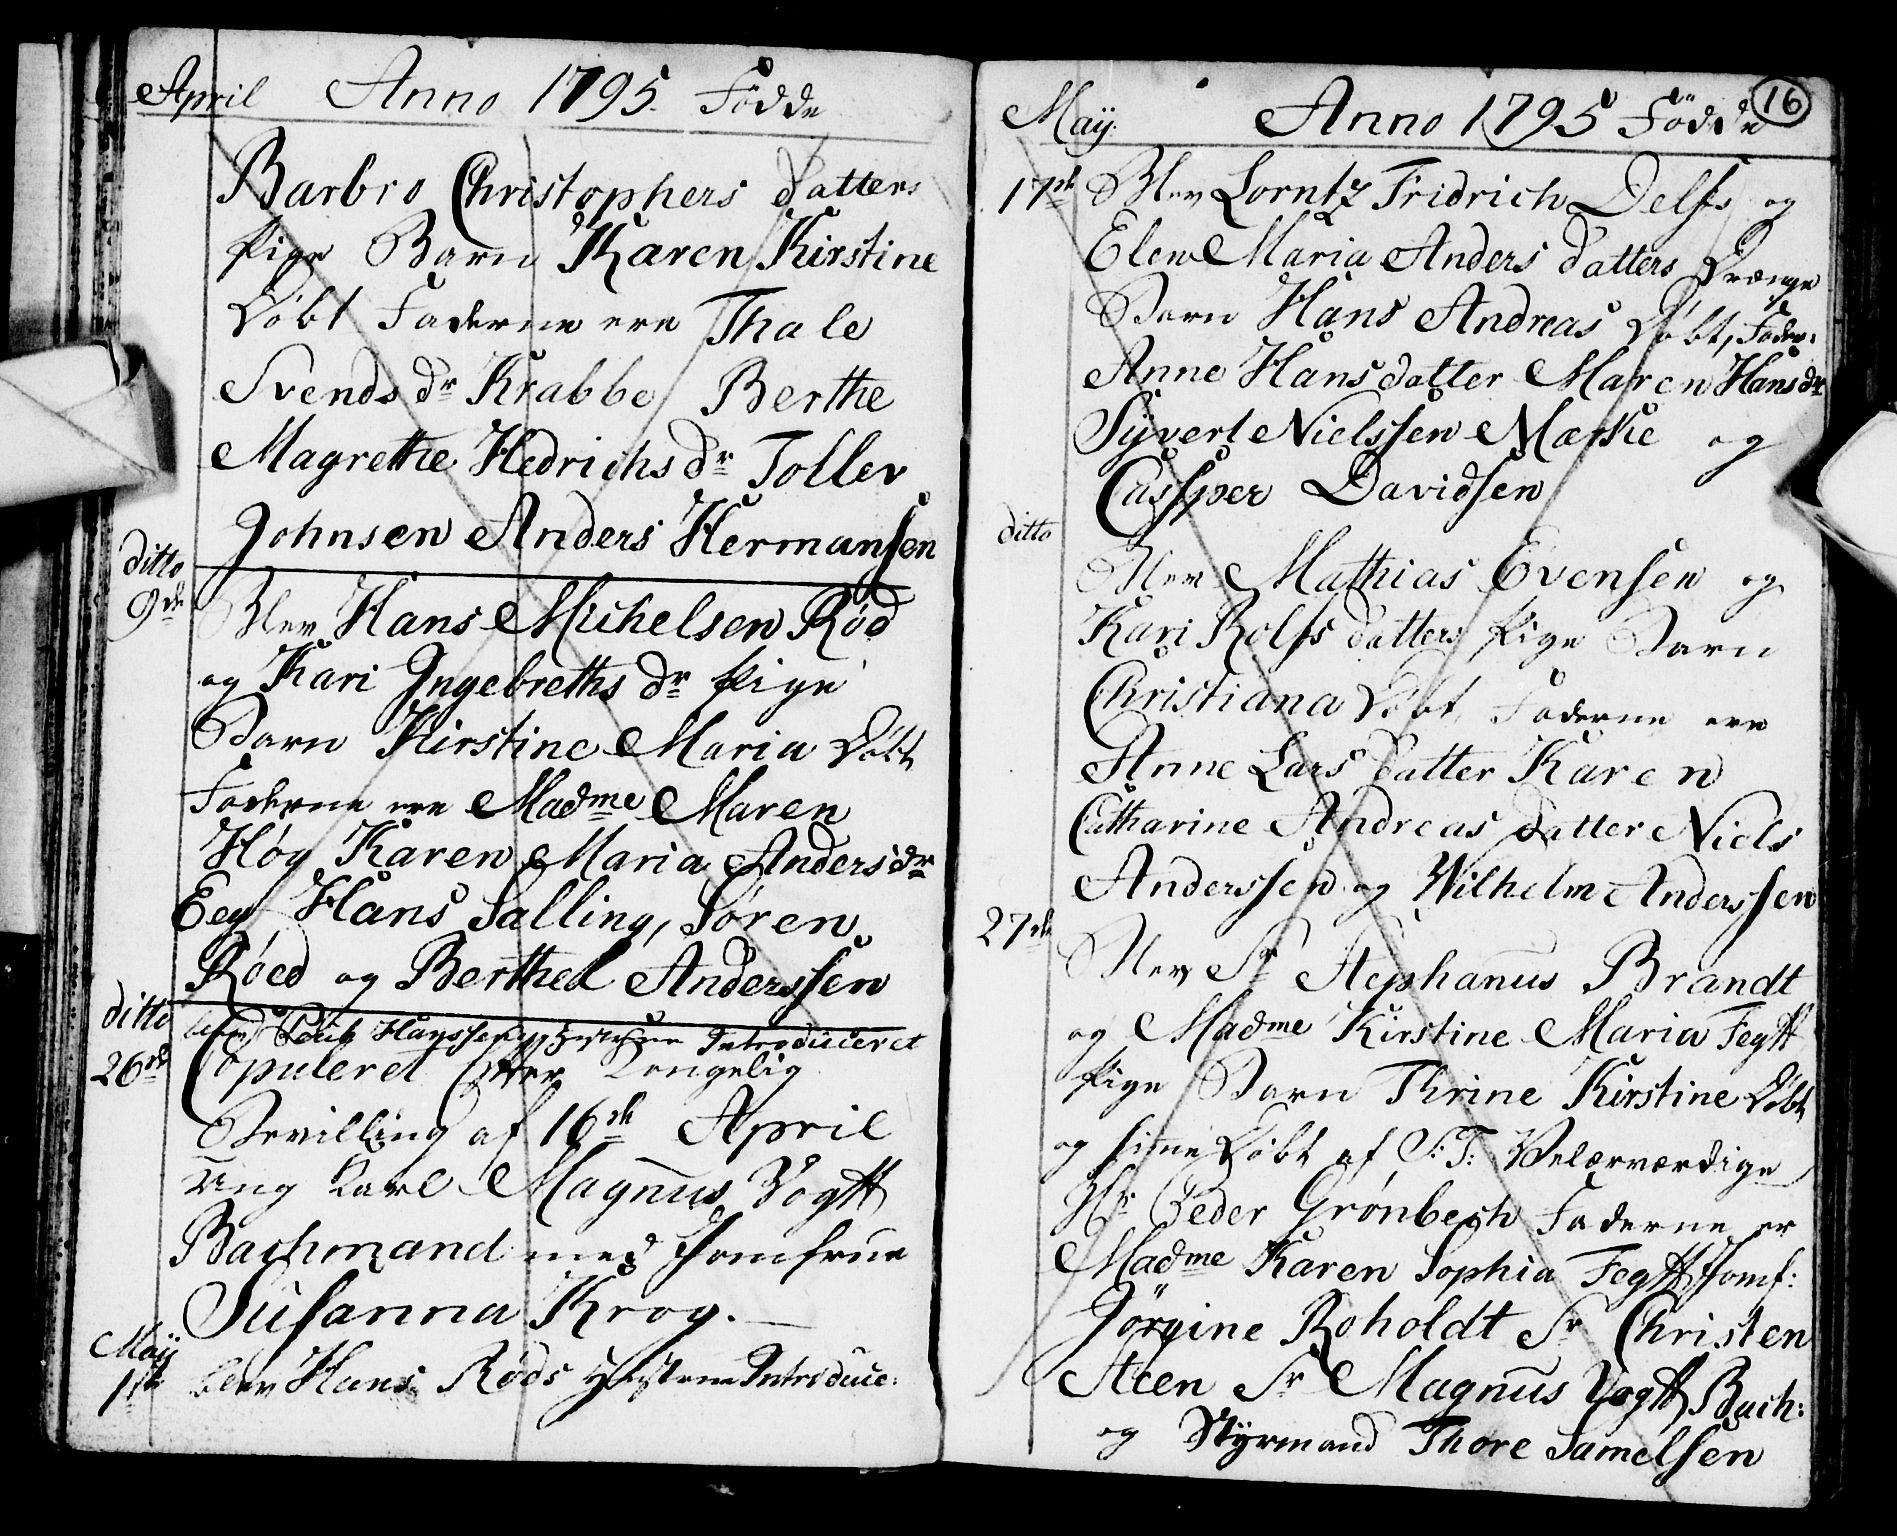 April Anno 1795. Fødde
Barbro Christophers datters
Pige Barn Karen Kirstine
Døbt Fadderne ere Thale
Svends dr Krabbe Berthe
Magrethe Hedrichs dr Tollev
Johnsen Anders Hermansen
ditto
9de Blev Hans Michelsen Rød
og Kari Ingebreths dr Pige
Barn Kirstine Maria Døbt
Fadderne ere Madme Maren
Høy Karen Maria Anders dr
Eeg Hans Salling, Søren
Røed og Berthel Anderssen
ditto
blev Hanssen Introduceret
26de Copuleret efter Kongelig
Bevilling af 16de April
Ung Karl Magnus Vogtt
Bachmand med Jomfrue
Susanna Krog.
Maij
1ste blev Hans Røds Hustrue Introduce:
16
Maij Anno 1795 Fødde
17de Blev Lorntz Fridrich Delfs og
Elen Maria Anders datters Drænge
Barn Hans Andreas Døbt, Fadder:
Anne Hans datter Maren Hans dr
Syvert Nielssen Mærke og
Cassper Davidsen
ditto
Blev Mathias Evensen og
Kari Rolfs datters Pige Barn
Christiana Døbt, Fadderne ere
Anne Lars datter Karen
Catharine Andreas datter Niels
Anderssen og Wilhelm Anderssen
27de Blev Sr Stephanus Brandt
og Madme Kirstine Maria Fegtt
Pige Barn Thrine Kirstine Døbt
og hiemme Døbt af S: T: Velærværdige
Hr Peder Grønbech Fadderne er
Madme Karen Sophia Fegtt, Jomf:
Jørgine Roholdt Sr Christen
Steen Sr Magnus Vogtt Bach:
og Styrmand Thore Samelsen